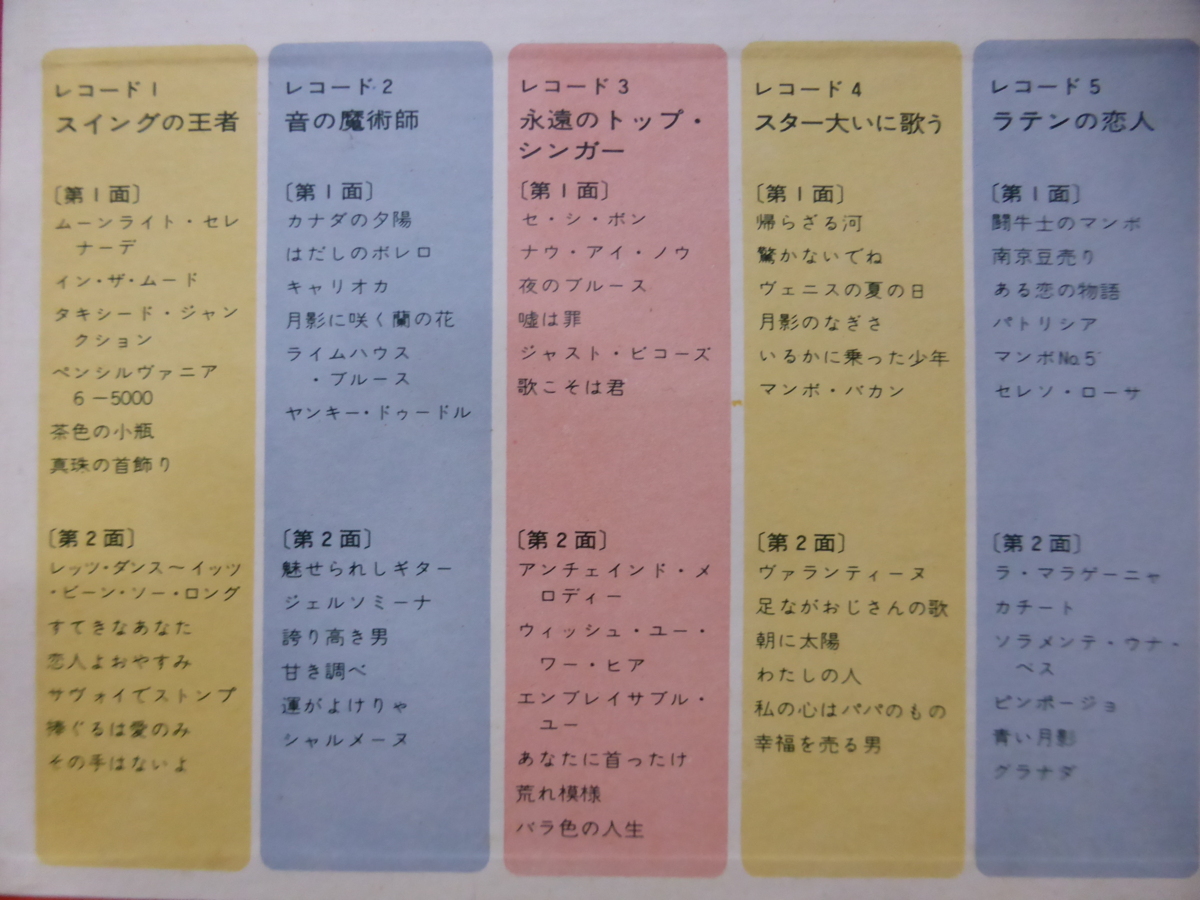 レコード1
スイングの王者
〔第1面〕
ムーンライト・セレ
ナーデ
イン・ザ・ムード
タキシード・ジャン
クション
ペンシルヴァニア
6－5000
茶色の小瓶
真珠の首飾り
〔第2面〕
レッツ・ダンス〜イッツ
・ビーン・ソー・ロング
すてきなあなた
恋人よおやすみ
サヴォイでストンプ
捧ぐるは愛のみ
その手はないよ
レコード2
音の魔術師
〔第1面〕
カナダの夕陽
はだしのボレロ
キャリオカ
月影に咲く蘭の花
ライムハウス
・ブルース
ヤンキー・ドゥードル
〔第2面〕
魅せられしギター
ジェルソミーナ
誇り高き男
甘き調べ
運がよけりゃ
シャルメーヌ
レコード3
永遠のトップ・
シンガー
〔第1面〕
セ・シ・ボン
ナウ・アイ・ノウ
夜のブルース
嘘は罪
ジャスト・ビコーズ
歌こそは君
〔第2面〕
アンチェインド・メ
ロディー
ウィッシュ・ユー・
ワー・ヒア
エンブレイサブル・
ユー
あなたに首ったけ
荒れ模様
バラ色の人生
レコード4
スター大いに歌う
〔第1面〕
帰らざる河
驚かないでね
ヴェニスの夏の日
月影のなぎさ
いるかに乗った少年
マンボ・バカン
〔第2面〕
ヴァランティーヌ
足ながおじさんの歌
朝に太陽
わたしの人
私の心はパパのもの
幸福を売る男
レコード5
ラテンの恋人
〔第1面〕
闘牛士のマンボ
南京豆売り
ある恋の物語
パトリシア
マンボNo.5
セレソ・ローサ
〔第2面〕
ラ・マラゲーニャ
カチート
ソラメンテ・ウナ・
ベス
ピンポージョ
青い月影
グラナダ